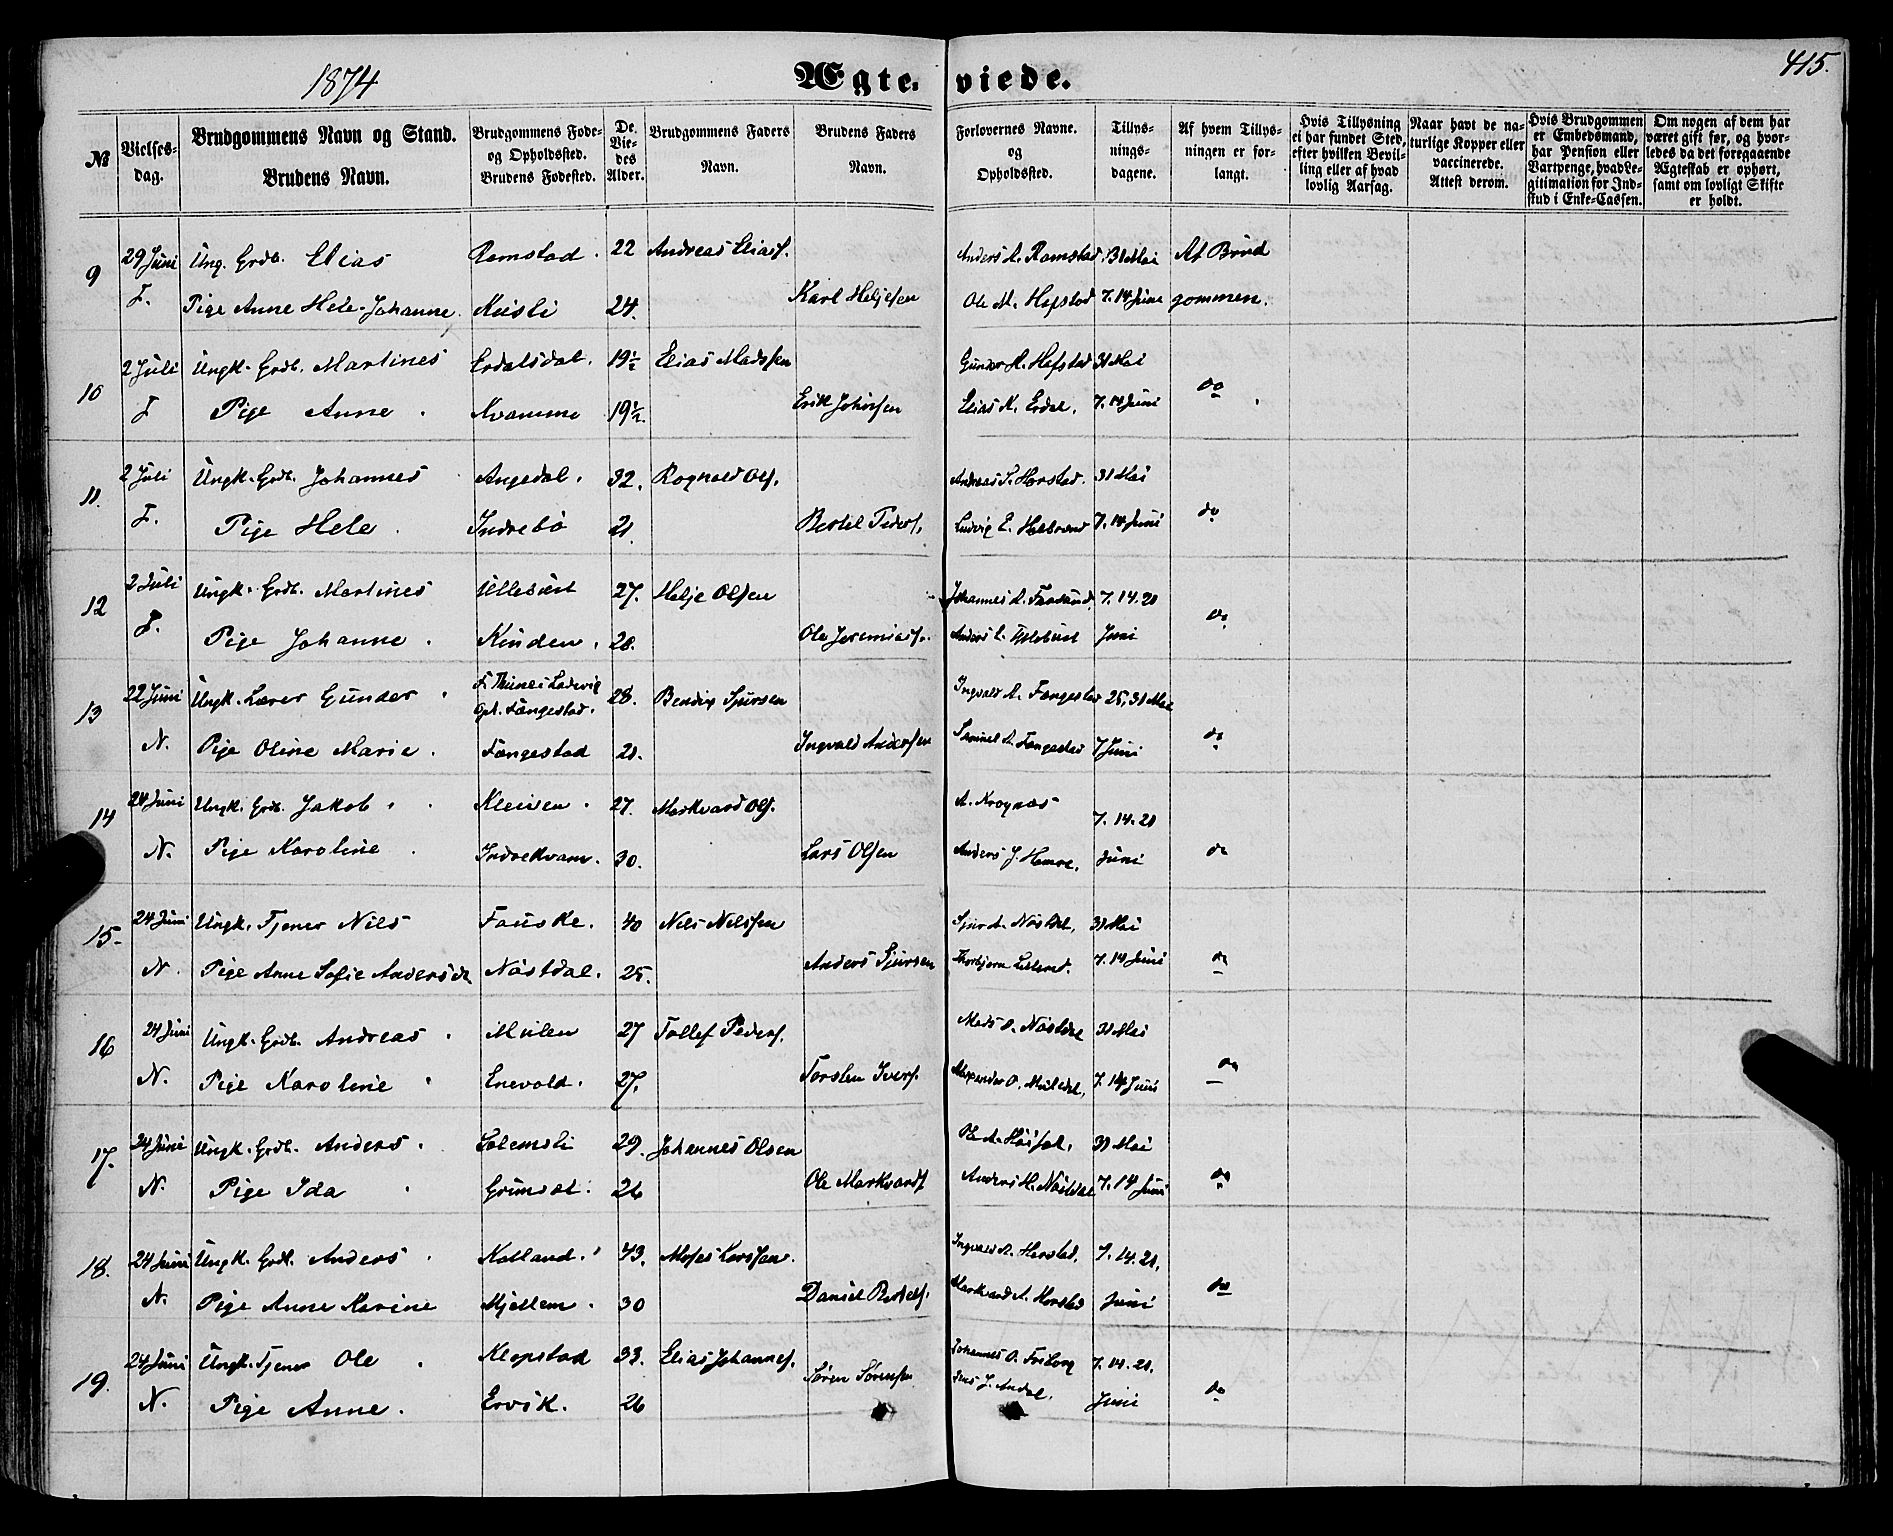 1874
Ægte-viede.
415.
№
Vielses-dag.
Brudgommens Navn og Stand.
Brudens Navn.
Brudgommens Føde-og Opholdssted.
Brudens Fødested.
De Vie-des Alder.
Brudgommens Faders Navn.
Brudens Faders Navn.
Forlovernes Navne. og Opholdssted.
Tillys-nings-dagene.
Af hvem Tillys-ningen er for-langt.
Hvis Tillysning ei har fundet Sted, efter hvilken Bevil-ling eller af hvad lovlig Aarsag.
Naar havt de na-turlige Kopper eller vaccinerede. Attest derom.
Hvis Brudgommen er Embedsmand, har Pension eller Vartpenge, hvad Le-gitimation for Ind-skud i Enke-Cassen.
Om nogen af dem har været gift før, og hvor-ledes da det foregaaende Ægteskab er ophørt, samt om lovligt Skifte er holdt.
9 29 Juni Ung. Grdb. Elias Ramstad. 22 Andreas Eliasf. Anders A. Ramstad 31 Mai At Brud
F. Pige Anne Hele Johanne. Kusli 24. Karl Heljesen Ole M. Hefstad 7. 14 Juni gommen.
10 2 Juli Ungk. Grdb. Martines Erdalsdal. 19½ Elias Madssen Gunder H. Hefstad 31 Mai
F Pige Anne. Kvamme 19½. Erik Johnsen Elias K. Erdal. 7. 14 Juni do
11. 2 Juli Ungk. Grdb. Johannes Angedal. 32. Rognald Ols. Andreas S. Horstad. 31 Mai
F. Pige Hele. Indrebö 21. Bertel Peders. Ludvig E. 7. 14 Juni do
12 2 Juli Ungk. Grdb. Martines 27. Helje Olsen Johannes A. 7. 14. 21
F. Pige Johanne. Kinden. 28. Ole Jeremiass. Anders Juni do
13 22 Juni Ungk. Lærer Gunder. F. 28. Bendix Sjursen Ingvald A. Fængestad 25, 31 Mai
Oph. Fængestad.
N. Pige Oline Marie. Fængestad 21. Ingvald Andersen Samuel A. Fængestad 7 Juni do
14 24 Juni Ungk. Grdb. Jakob. Kleiven. 27. Markvard Ols. A. Krognæs 7. 14. 21
N. Pige Karoline. Indrekvam. 30. Lars Olsen Anders J. Hamre. Juni do
15. 24 Juni Ungk. Tjener Nils Fauske. 40 Nils Nilssen Sjur A. Nöstdal. 31 Mai
N. Pige Anne Sofie Andersdr Nöstdal. 25. Anders Sjursen Thorbjørn 7. 14 Juni do
16 24 Juni Ungk. Grdb. Andreas. Mulen 27 Tollef Peders. Mads O. Nöstdal 31 Mai
N. Pige Karoline. Enevold. 27. Torsten Ivers. 7. 14 Juni do
17. 24 Juni Ungk. Grdb. Anders. Solemsli 29. Johannes Olsen Ole A. 31 Mai
N. Pige Ida. Grimset. 26 Ole Markvards Anders H. Nöstdal 7. 14 Juni do
18. 24 Juni Ungk. Grdb. Anders. Kalland. 43. Moses Larssen. Ingvald A. Horstad. 7. 14. 21.
N. Pige Anne Karine Mjellem. 30 Daniel Markvard A. Horstad Juni do
19. 24 Juni Ungk. Tjener Ole. Klopstad 33. Elias Johannes. Johannes O. Friborg 7. 14. 21.
N. Pige Anne. Ervik. 26 Søren Sørensen Jens J. Andal. Juni do